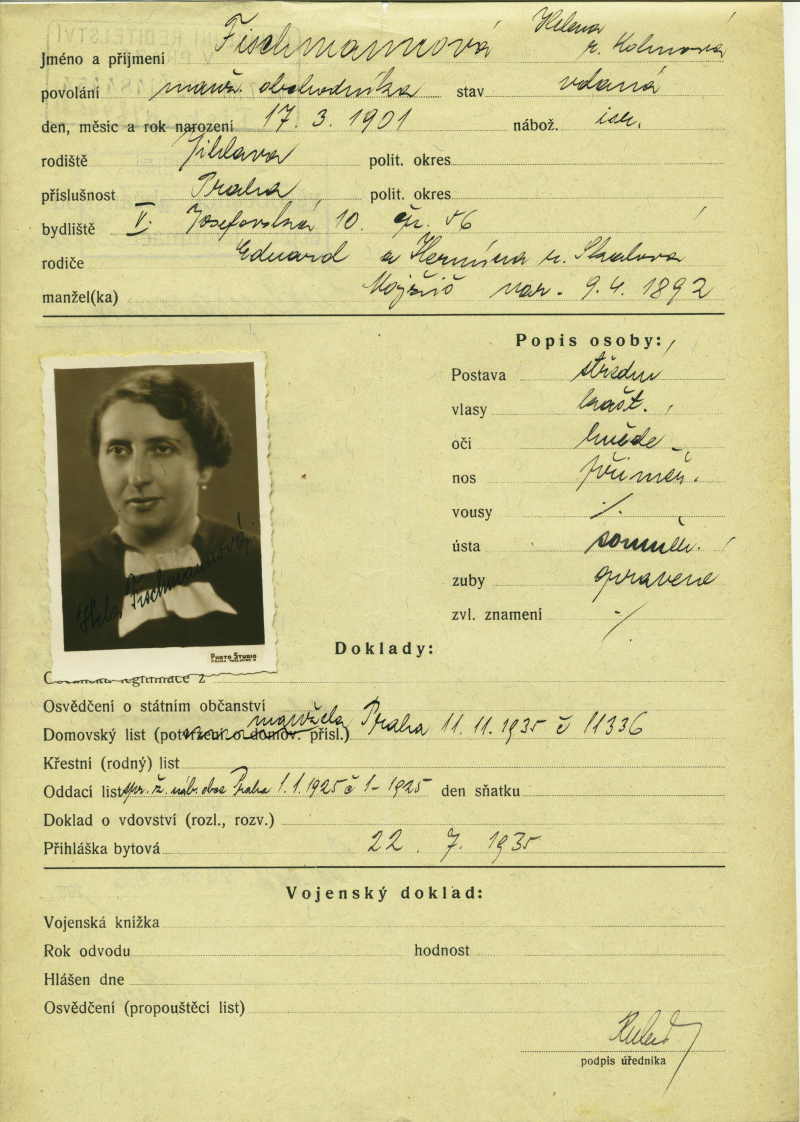 Jméno a příjmení Fischmannová Helena r. Kohnová
povolání manž. obchodníka stav vdaná
den, měsíc a rok narození 17. 3. 1901 nábož. isr.
rodiště Jihlava polit. okres
příslušnost Praha polit. okres
bydliště V. Josefovská 10. čp. 56
rodiče Eduard a Hermína r.
manžel(ka) Mojžíš nar. 9. 4. 1892
Popis osoby:
Postava střední
vlasy kašt.
oči hnědé
nos přiměř.
vousy ·/.
ústa souměr.
zuby opravené
zvl. znamení ·/.
Hela Fischmannová
PHOTO STUDIO
Doklady:
legitimace z
Osvědčení o státním občanství
manžela
Domovský list (potvrzení o domov. přísl.) Praha 11. 11. 1935 č 11336
Křestní (rodný) list
Oddací list ž. náb. obce Praha 1. 1. 1925 č 1-1925 den sňatku
Doklad o vdovství (rozl., rozv.)
Přihláška bytová 22. 7. 1935
Vojenský doklad:
Vojenská knížka
Rok odvodu hodnost
Hlášen dne
Osvědčení (propouštěcí list)
podpis úředníka